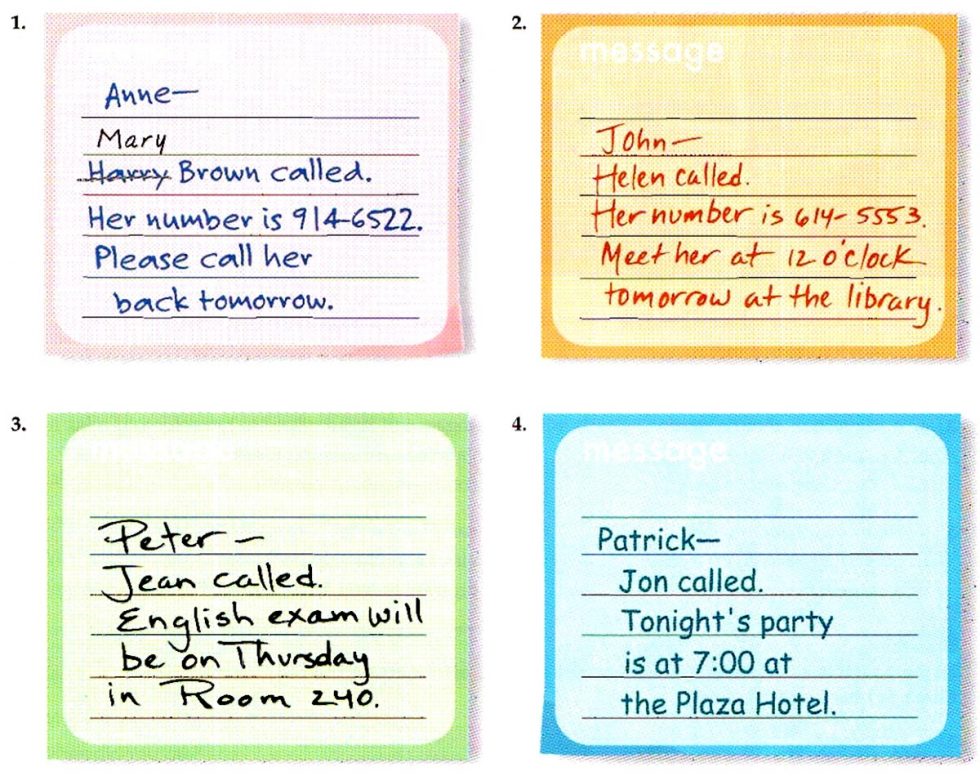 1.
Anne—
Mary
Harry Brown called.
Her number is 914-6522.
Please call her
back tomorrow.
2.
message
John—
Helen called.
Her number is 614-5553.
Meet her at 12 o'clock
tomorrow at the library.
3.
message
Peter—
Jean called.
English exam will
be on Thursday
in Room 240.
4.
message
Patrick—
Jon called.
Tonight's party
is at 7:00 at
the Plaza Hotel.